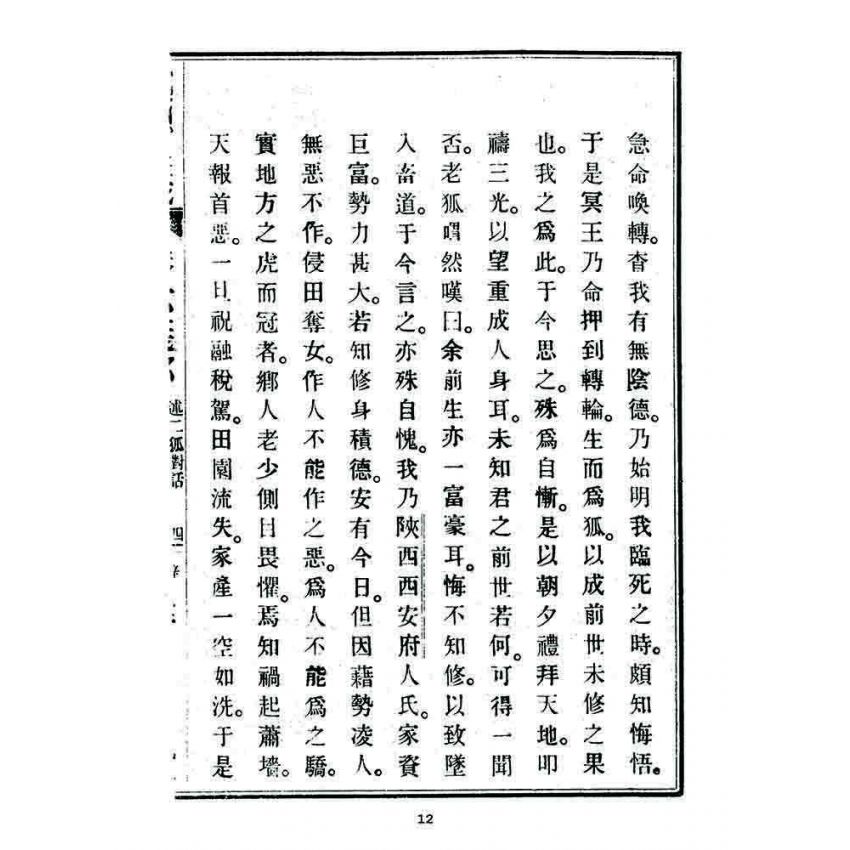 急命喚轉。杳我有無陰德。乃始明我臨死之時。頗知悔悟。
于是冥王乃命押到轉輪。生而爲狐。以成前世未修之果
也。我之爲此。于今思之。殊爲自慚。是以朝夕禮拜天地。叩
禱三光。以望重成人身耳。未知君之前世若何。可得一聞
否。老狐喟然嘆曰。余前生亦一富豪耳。悔不知修。以致墜
入畜道。于今言之。亦殊自愧。我乃陝西西安府人氏。家資
巨富。勢力甚大。若知修身積德。安有今日。但因藉勢凌人。
無惡不作。侵田奪女。作人不能作之惡。爲人不能爲之驕。
實地方之虎而冠者。鄉人老少側目畏懼。焉知禍起蕭墻。
天報首惡。一旦祝融稅駕。田園流失。家產一空如洗。于是
述二狐對話
四
12